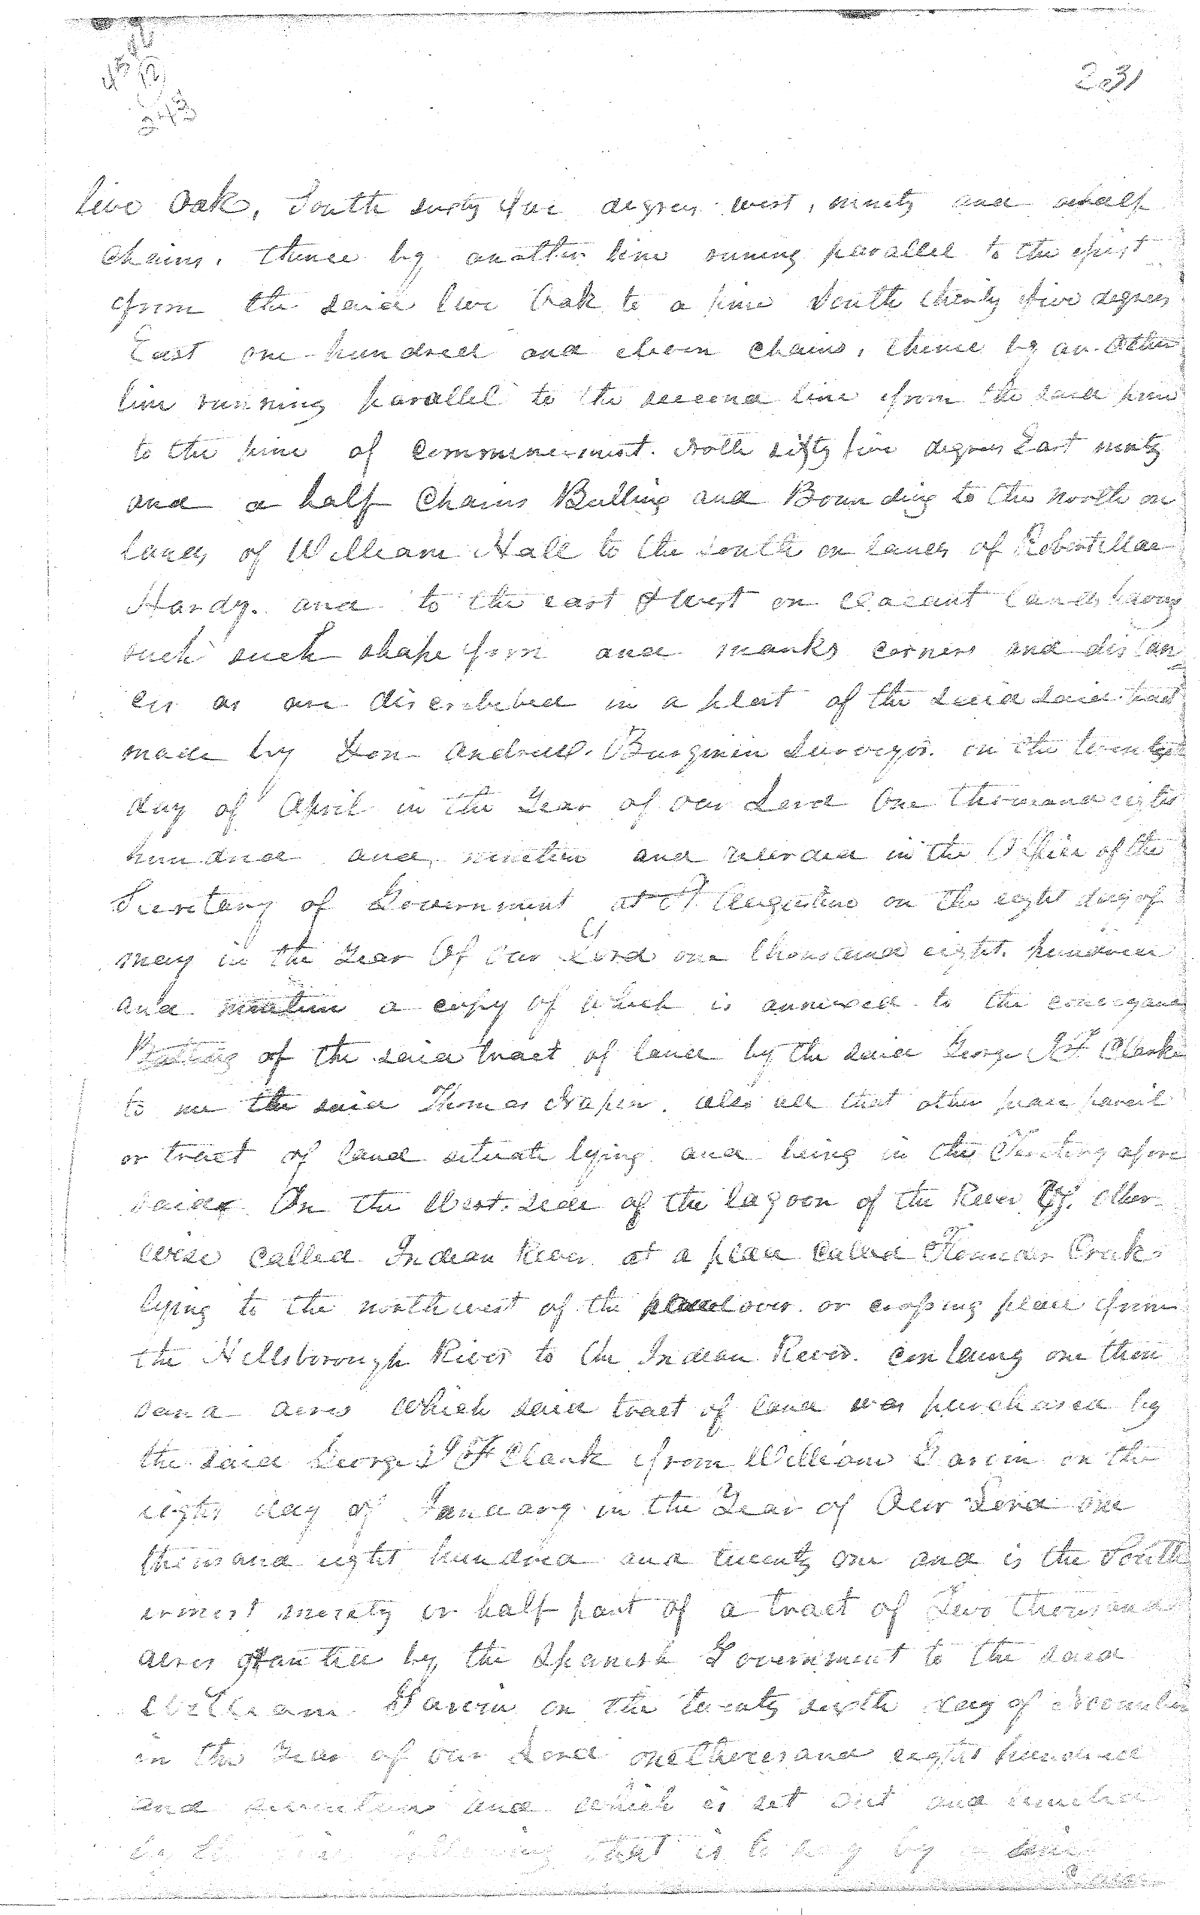 231
243
live Oak, South sixty five degrees west, ninety and a half
chains, thence by another line running parallel to the first
from the said live Oak to a pine South thirty five degrees
East one hundred and eleven chains, thence by an other
line running parallel to the second line from the said pine
to the pine of commencement. North sixty five degrees East ninety
and a half Chains Butting and Bounding to the north on
lands of William Hall to the south on lands of Robert Mac
Hardy. and to the east & West on vacant lands having
such such shape form and marks corners and distan
ces as are discribebed in a plat of the said said tract
made by Don Andrew Burgevin Surveyor. on the twenty
day of April in the Year of our Lord One thousand eight
hundred and nineteen and recorded in the Office of the
Secretary of Government at St Augustine on the eight day of
may in the Year Of our Lord one thousand eight hundred
and nineteen a copy of which is annexed to the conveyance
of the said tract of land by the said George J F Clarke
to me the said Thomas Napier. also all that other place parcil
or tract of land situate lying and being in the Teritory afore
said On the West side of the lagoon of the River Of. other-
wise called Indian River at a place called Flounder Creek
lying to the northwest of the over or crossing place from
the Hillsborough River to the Indian River. containg one thou
sand acres which said tract of land was purchased by
the said George J F Clark from William Garvin on the
eight day of January in the Year of Our Lord one
thousand eight hundred and twenty one and is the South
ermost moiety or half part of a tract of Two thousand
acres granted by the Spanish Government to the said
William Garvin on the twenty sixth day of
in the Year of our Lord one thousand eight hundred
and seventeen and which is set out and
by the following that is to say by a